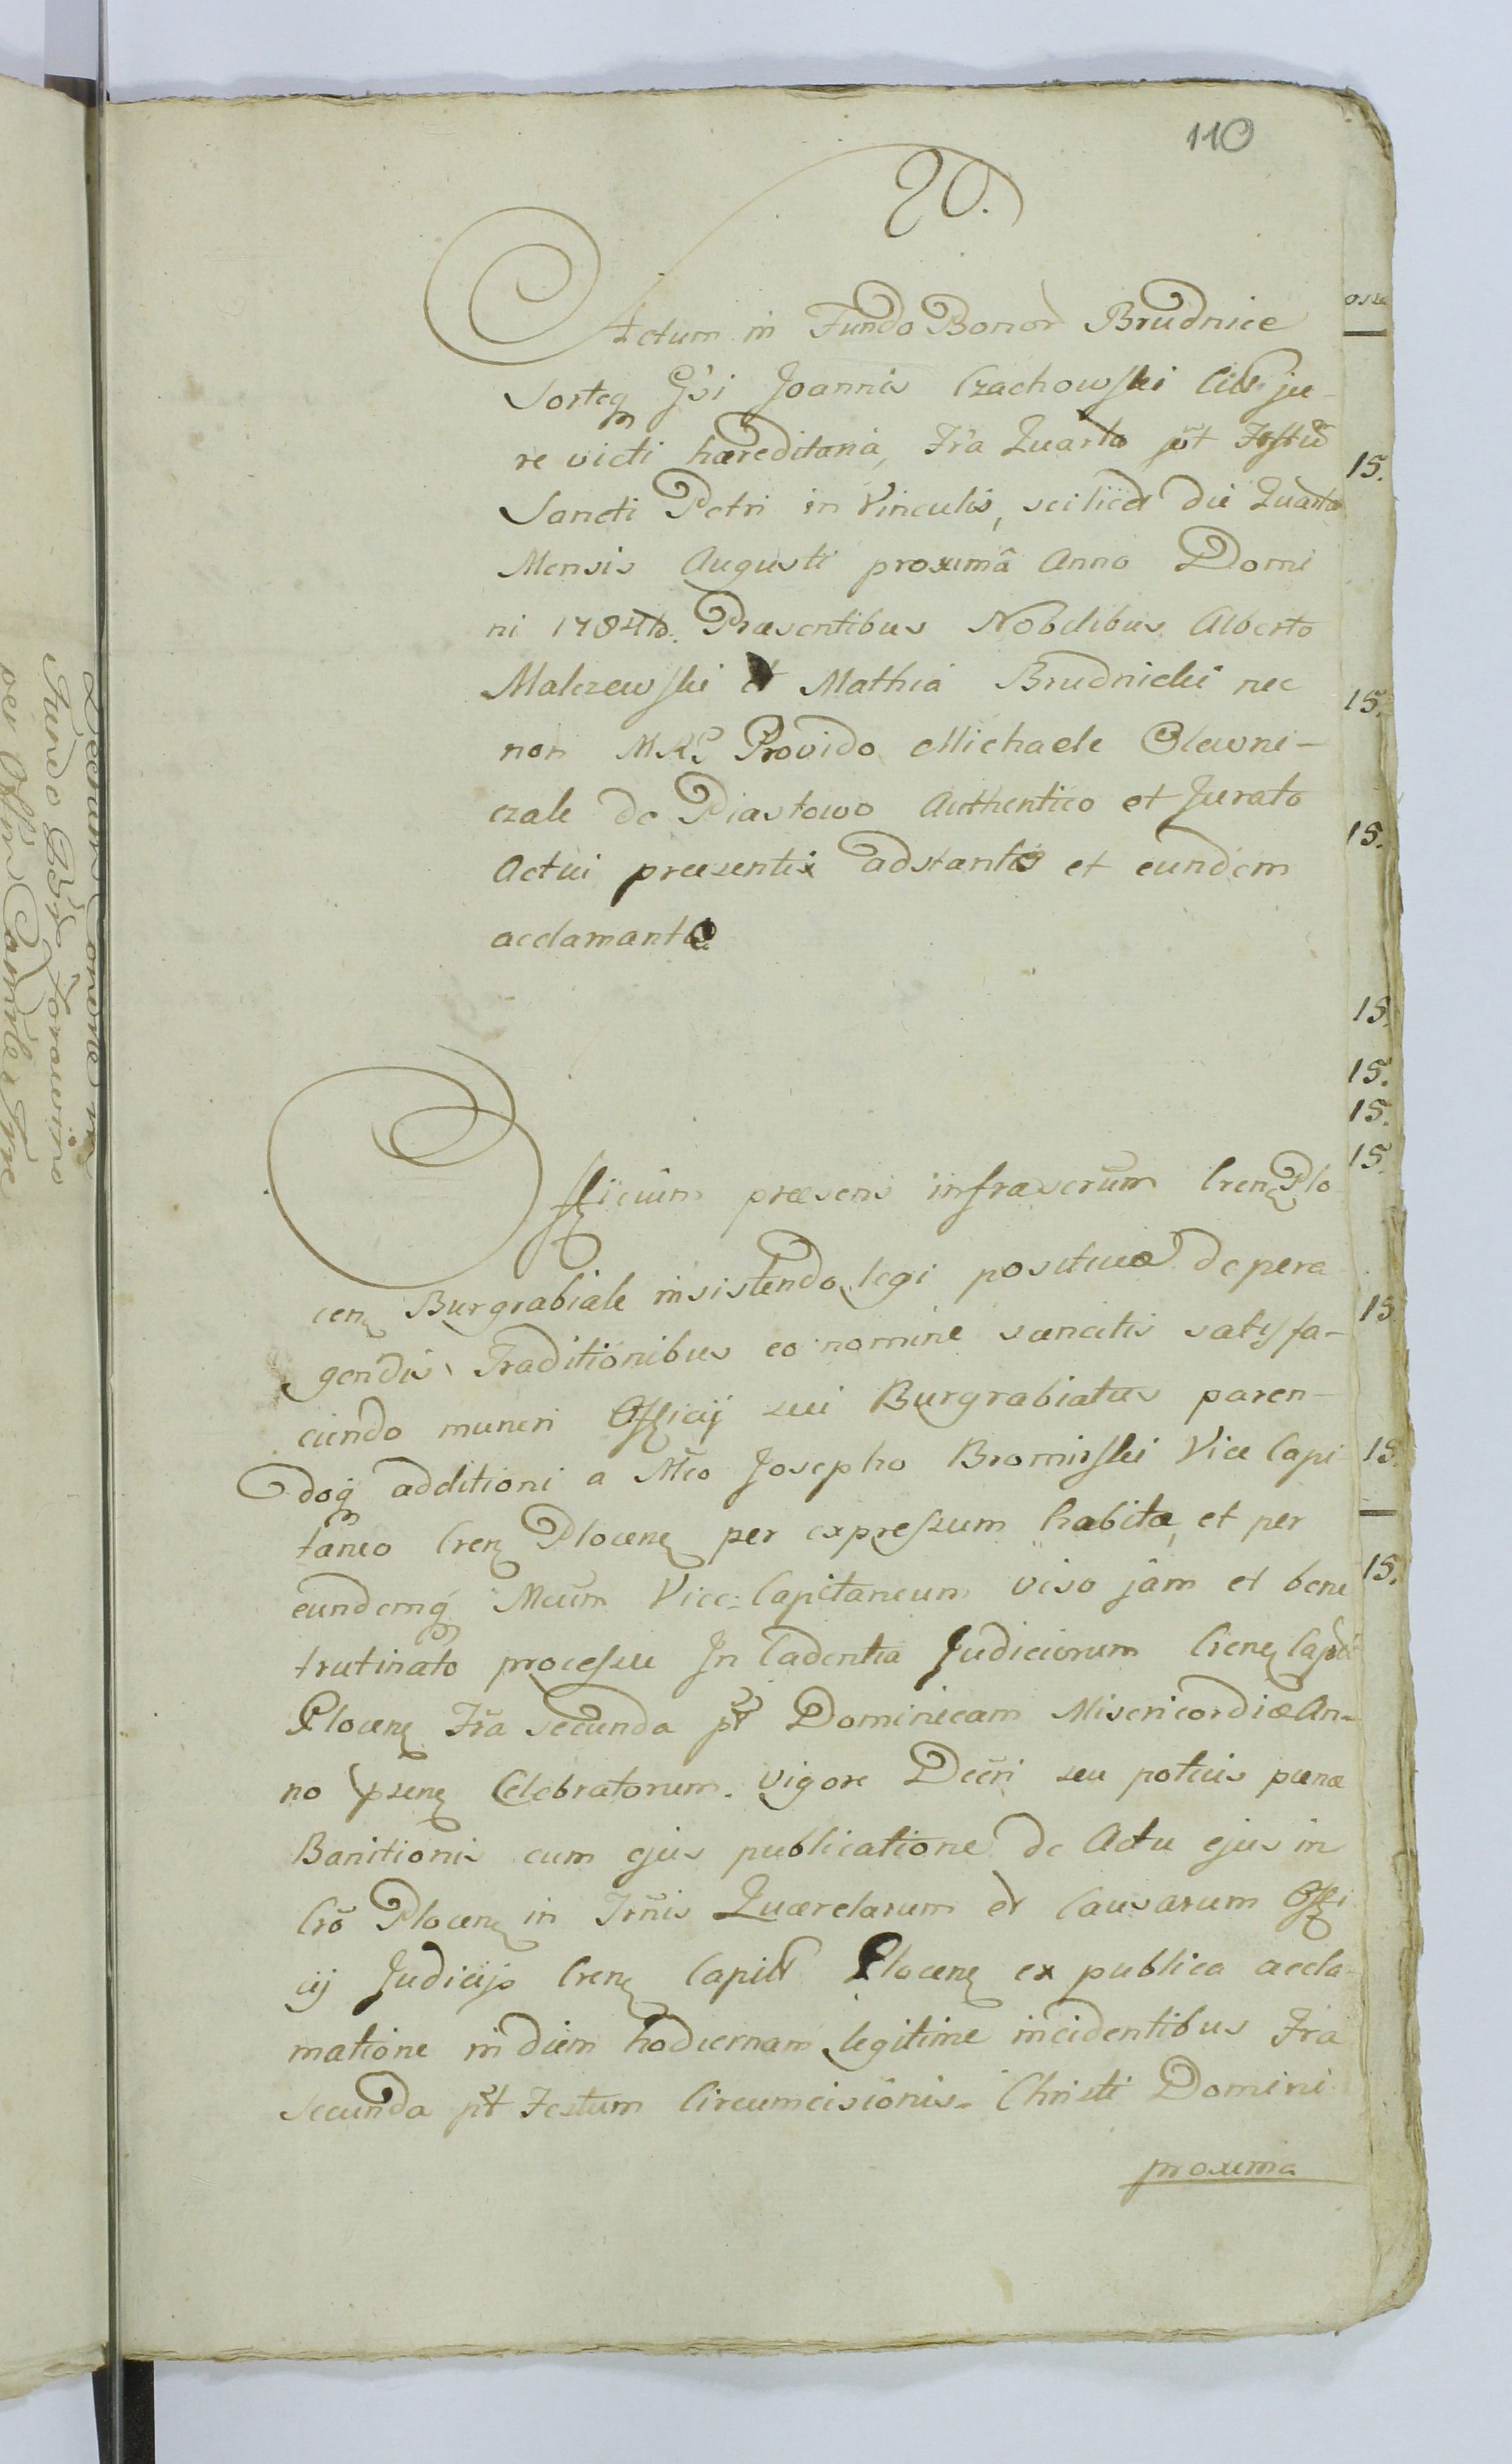 110
20.
Actum in Fundo Bonor Brudnice
Sorteq Gsi Joannis Czachowski Citi ju-
re victi hæreditaria, Fra Quarta pōt Festū
Sancti Petri in Vinculis, scilicet die Quarta
Mensis Augusti proximâ Anno Domi
ni 1784to. Præsentibus Nobilibus Alberto
Malczewski et Mathia Brudnicki nec
non Provido Michaele Olewni-
czak de Piastowo Authentico et Jurato
Actui præsenti adstante et eundem
acclamante
Officium præsens infrascrum Cren Plo
cen Burgrabiale insistendo legi positivæ de pera
gendis Traditionibus eo nomine sancitis satisfa-
ciendo muneri Officij sui Burgrabiatus paren-
doq additioni a Mco Josepho Bromirski Vice Capi-
taneo Cren Plocen per expressum habita, et per
eundemq Mcum Vice-Capitaneum viso jâm et bene
trutinato processu In Cadentia Judiciorum Cren Capitl
Plocen Fra secunda pt Dominicam Misericordiæ An-
no psen Celebratorum. Vigore Decri seu potius pœnæ
Banitionis cum ejus publicatione de Actu ejus in
Cro Plocen in Trnis Quærelarum et Causarum Offi
cij Judicijs Cren Capitl Plocen ex publica accla-
matione in diem hodiernam legitime incidentibus Fra
secunda pt Festum Circumcisionis Christi Domini
proxima
15.
15.
15.
15.
15.
15.
15.
15
15.
15.